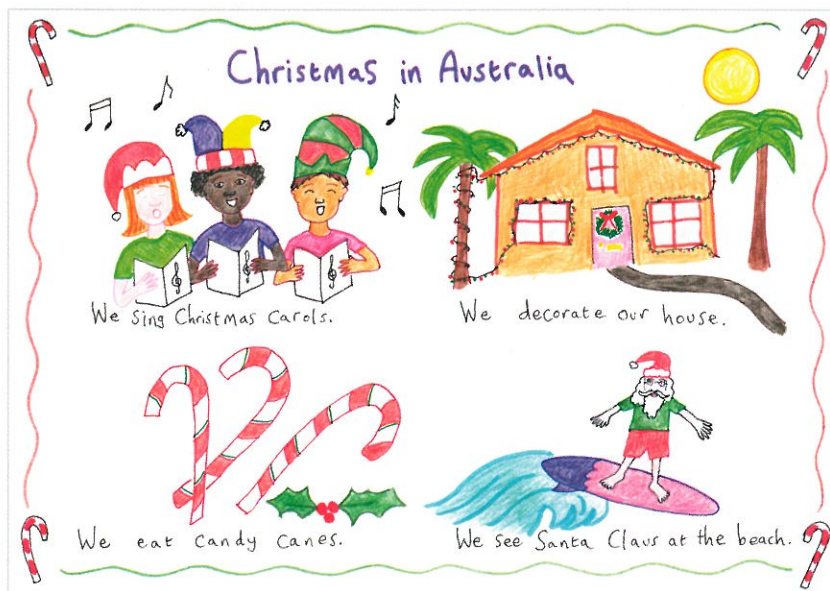 Christmas in Australia
We sing Christmas Carols.
We decorate our house.
We eat candy canes.
We see Santa Claus at the beach.